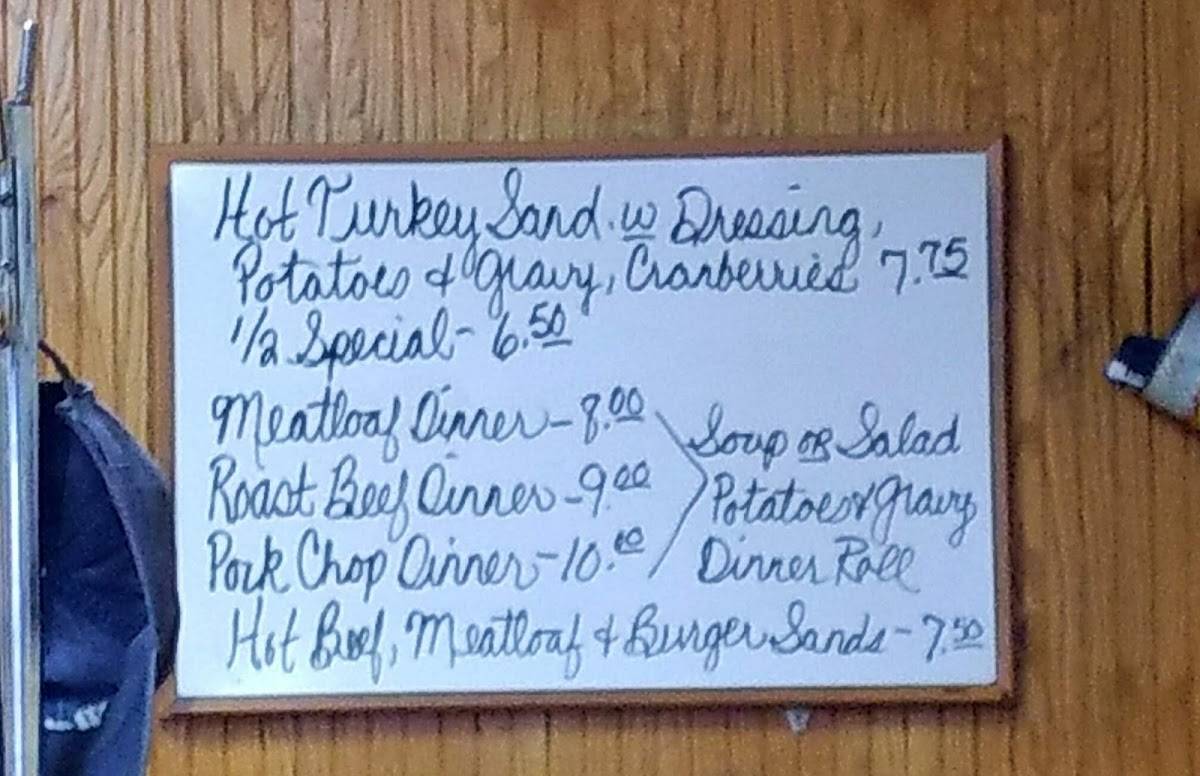 Hot Turkey Sand. w Dressing,
Potatoes & Gravy, Cranberries 7.75
1/2 Special - 6.50
Meatloaf Dinner - 8.00
Roast Beef Dinner - 9.00
Pork Chop Dinner - 10.00
Soup or Salad
Potatoes & Gravy
Dinner Roll
Hot Beef, Meatloaf & Burger Sands - 7.50